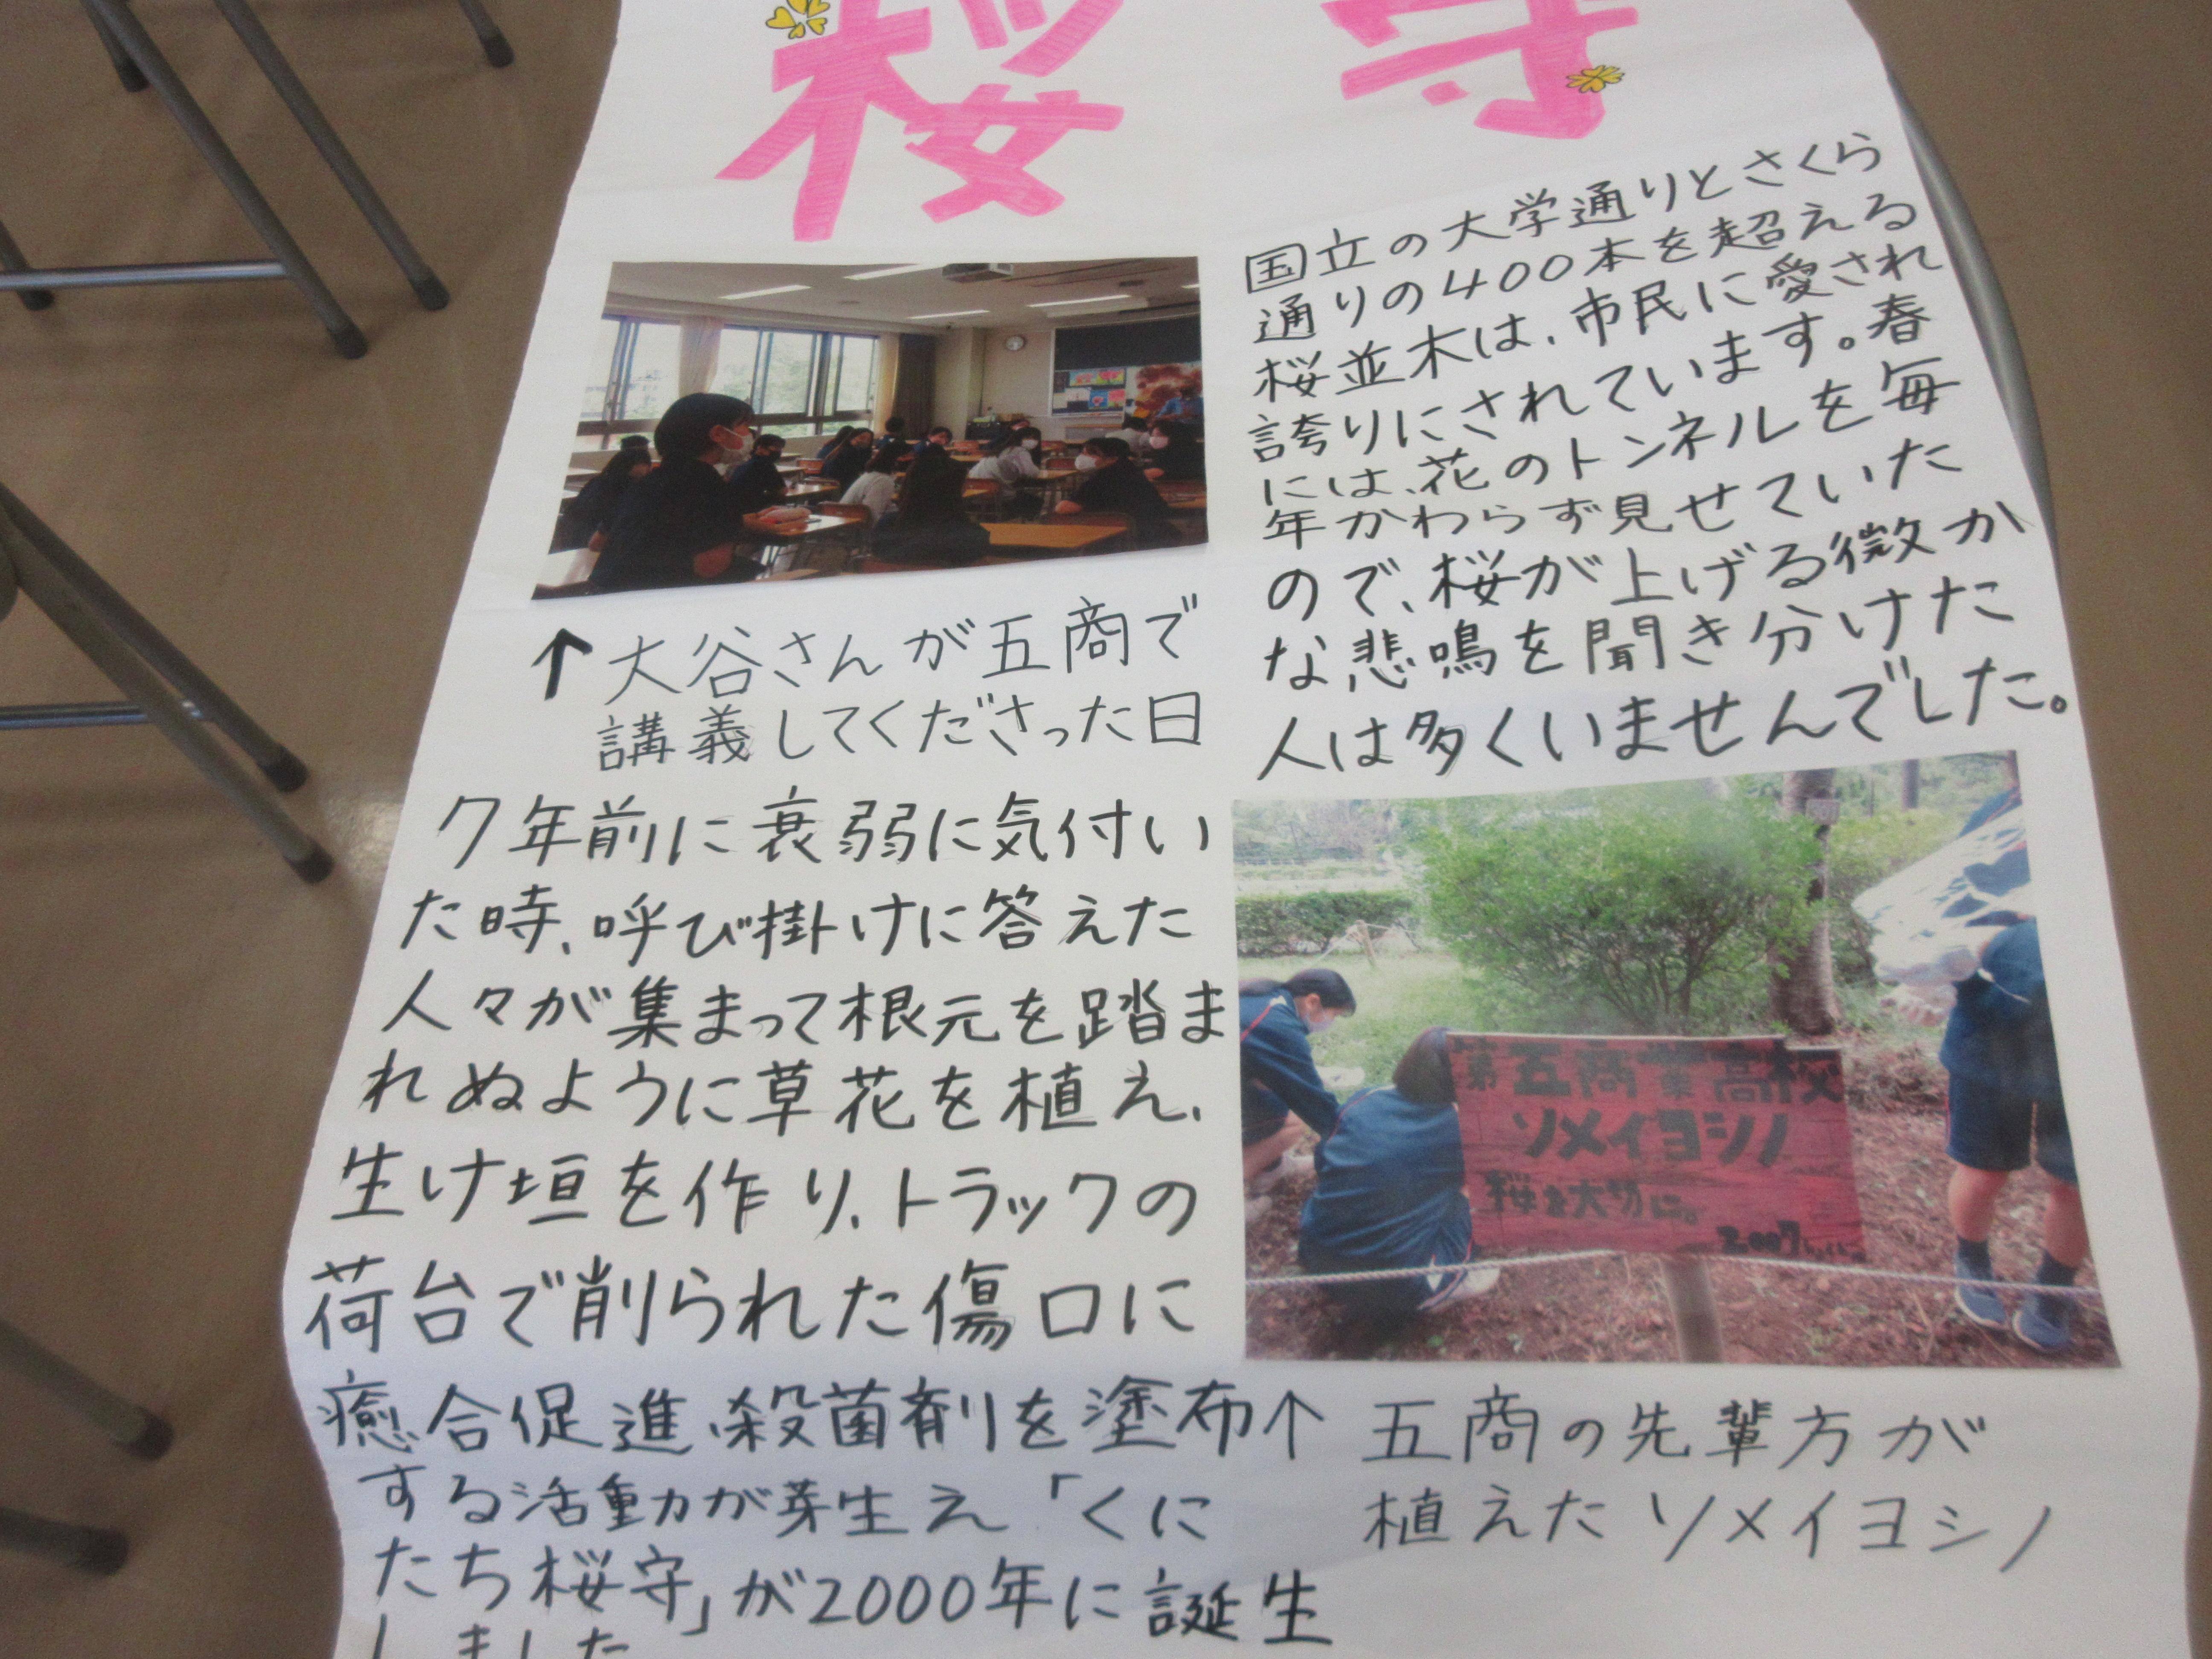 桜守
国立の大学通りとさくら
通りの400本を超える
桜並木は、市民に愛され
誇りにされています。春
には、花のトンネルを毎
年かわらず見せていた
ので、桜が上げる微か
な悲鳴を聞き分けた
人は多くいませんでした。
↑大谷さんが五商で
講義してくださった日
7年前に衰弱に気付い
た時、呼び掛けに答えた
人々が集まって根元を踏ま
れぬように草花を植え、
生け垣を作り、トラックの
荷台で削られた傷口に
癒合促進殺菌剤を塗布
する活動が芽生え「くに
たち桜守」が2000年に誕生
しました
第五商業高校
ソメイヨシノ
桜を大切に。
2007
↑五商の先輩方が
植えたソメイヨシノ